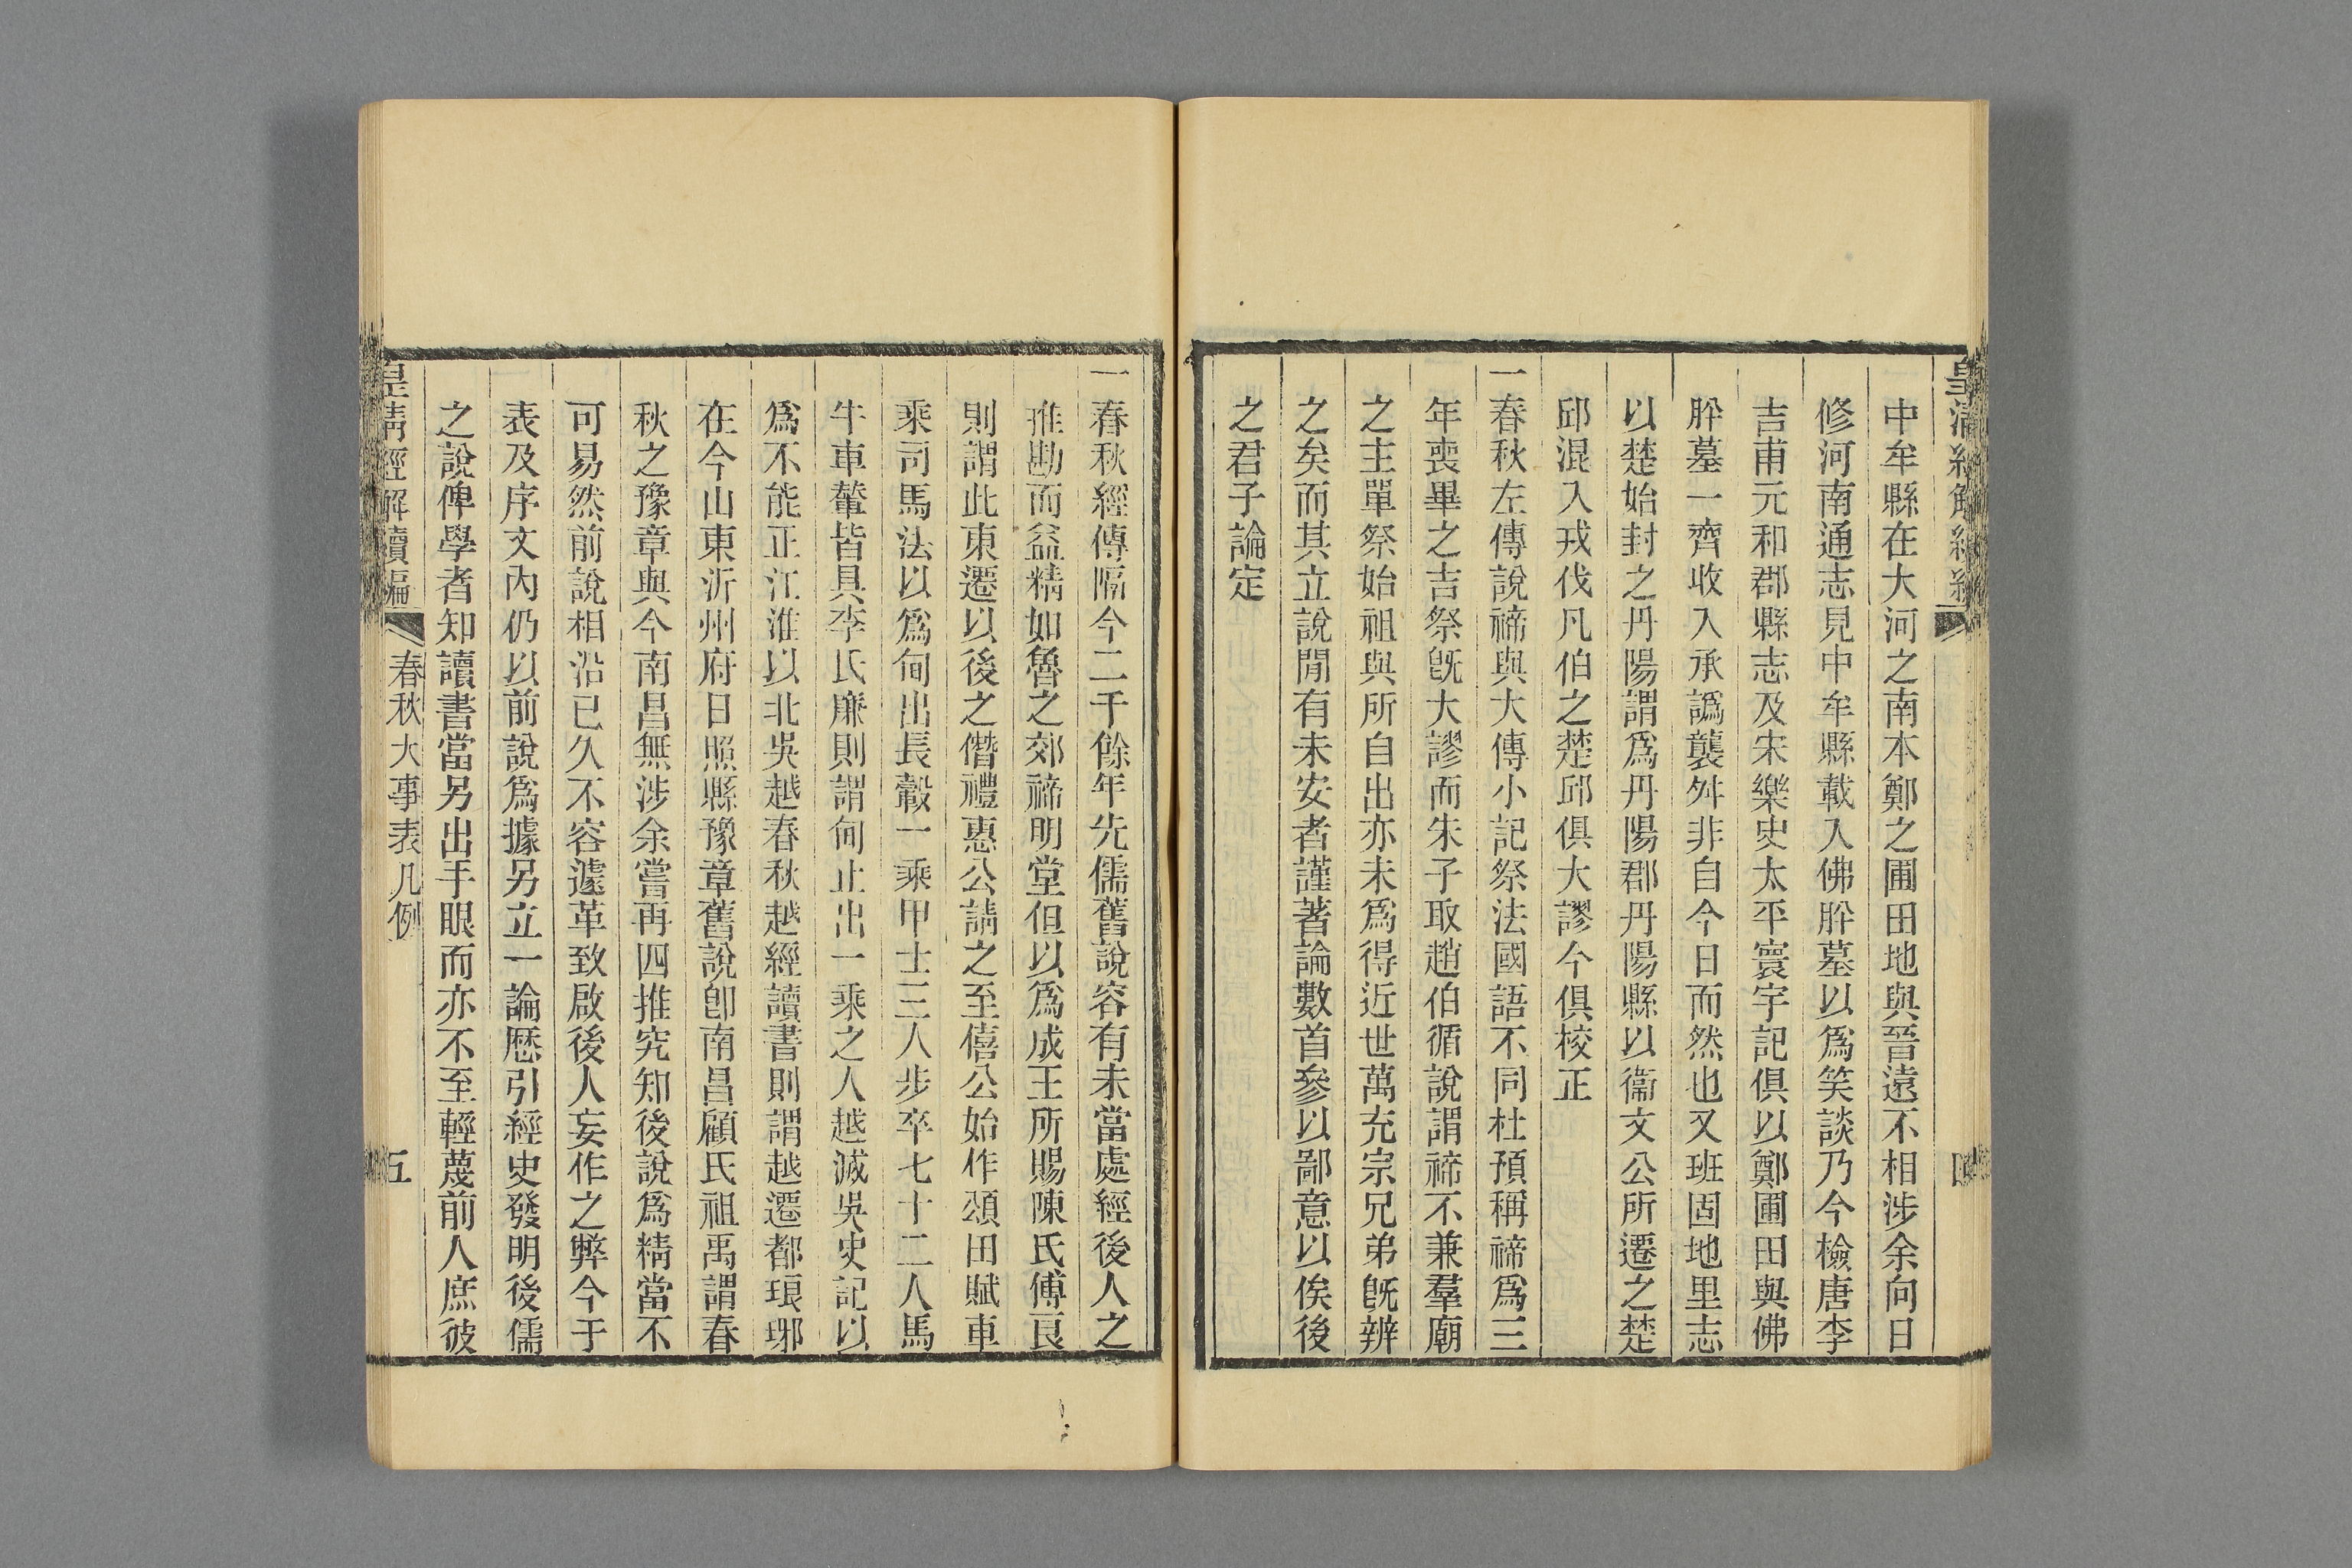 皇清經解續編
四
中牟縣在大河之南本鄭之圃田地與晉遠不相涉余向日
修河南通志見中牟縣載入佛肸墓以爲笑談乃今檢唐李
吉甫元和郡縣志及宋樂史太平寰宇記俱以鄭圃田與佛
肸墓一齊收入承譌襲舛非自今日而然也又班固地里志
以楚始封之丹陽謂爲丹陽郡丹陽縣以衞文公所遷之楚
邱混入戎伐凡伯之楚邱俱大謬今俱校正
一春秋左傳說禘與大傳小記祭法國語不同杜預稱禘爲三
年喪畢之吉祭旣大謬而朱子取趙伯循說謂禘不兼羣廟
之主單祭始祖與所自出亦未爲得近世萬充宗兄弟旣辨
之矣而其立說閒有未安者謹著論數首參以鄙意以俟後
之君子論定
一春秋經傳隔今二千餘年先儒舊說容有未當處經後人之
推勘而益精如魯之郊禘明堂但以爲成王所賜陳氏傅良
則謂此東遷以後之僭禮惠公請之至僖公始作頌田賦車
乘司馬法以爲甸出長轂一乘甲士三人步卒七十二人馬
牛車輦皆具李氏廉則謂甸止出一乘之人越滅吳史記以
爲不能正江淮以北吳越春秋越經讀書則謂越遷都琅琊
在今山東沂州府日照縣豫章舊說卽南昌顧氏祖禹謂春
秋之豫章與今南昌無涉余嘗再四推究知後說爲精當不
可易然前說相沿已久不容遽革致啟後人妄作之弊今于
表及序文內仍以前說爲據另立一論歷引經史發明後儒
之說俾學者知讀書當另出手眼而亦不至輕蔑前人庶彼
皇清經解續編
春秋大事表凡例
五